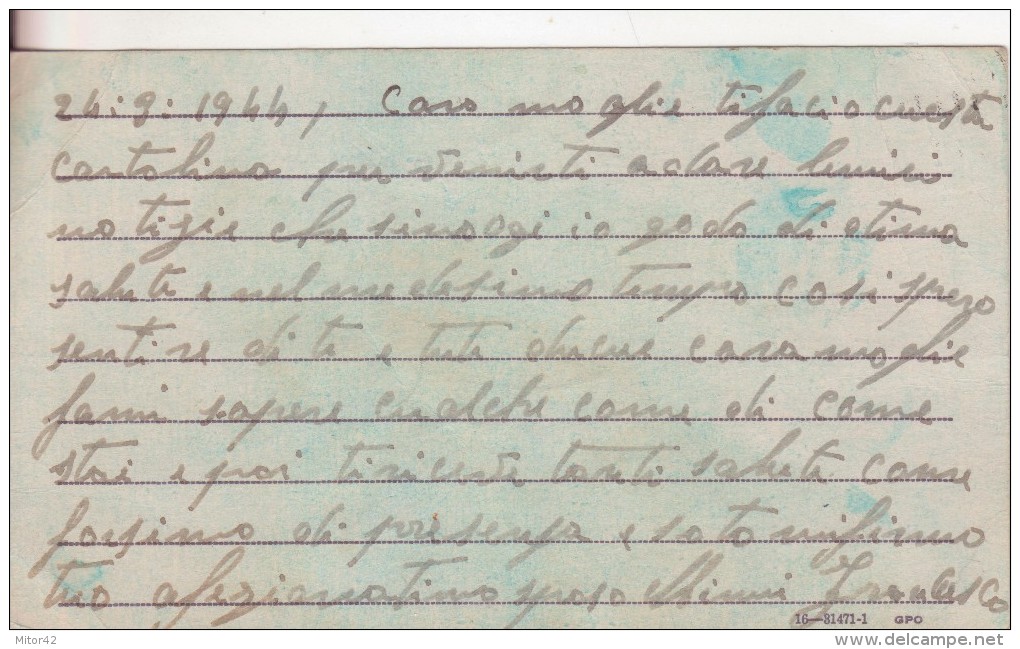 24.9.1944, Caro moglie ti facio cuesta
cartolina per venirti a dare
notizie che sino ogi io godo di otima
salute e nel medesimo tempo cosi spero
sentire di te e tute cara moglie
fami sapere cualche come di come
stai e poi ti riceve tanti salute come
fossimo di presenza e soto mi firmo
tuo afezionatimo sposo Francesco
16—81471-1 GPO
Mitor42
delcampe.net